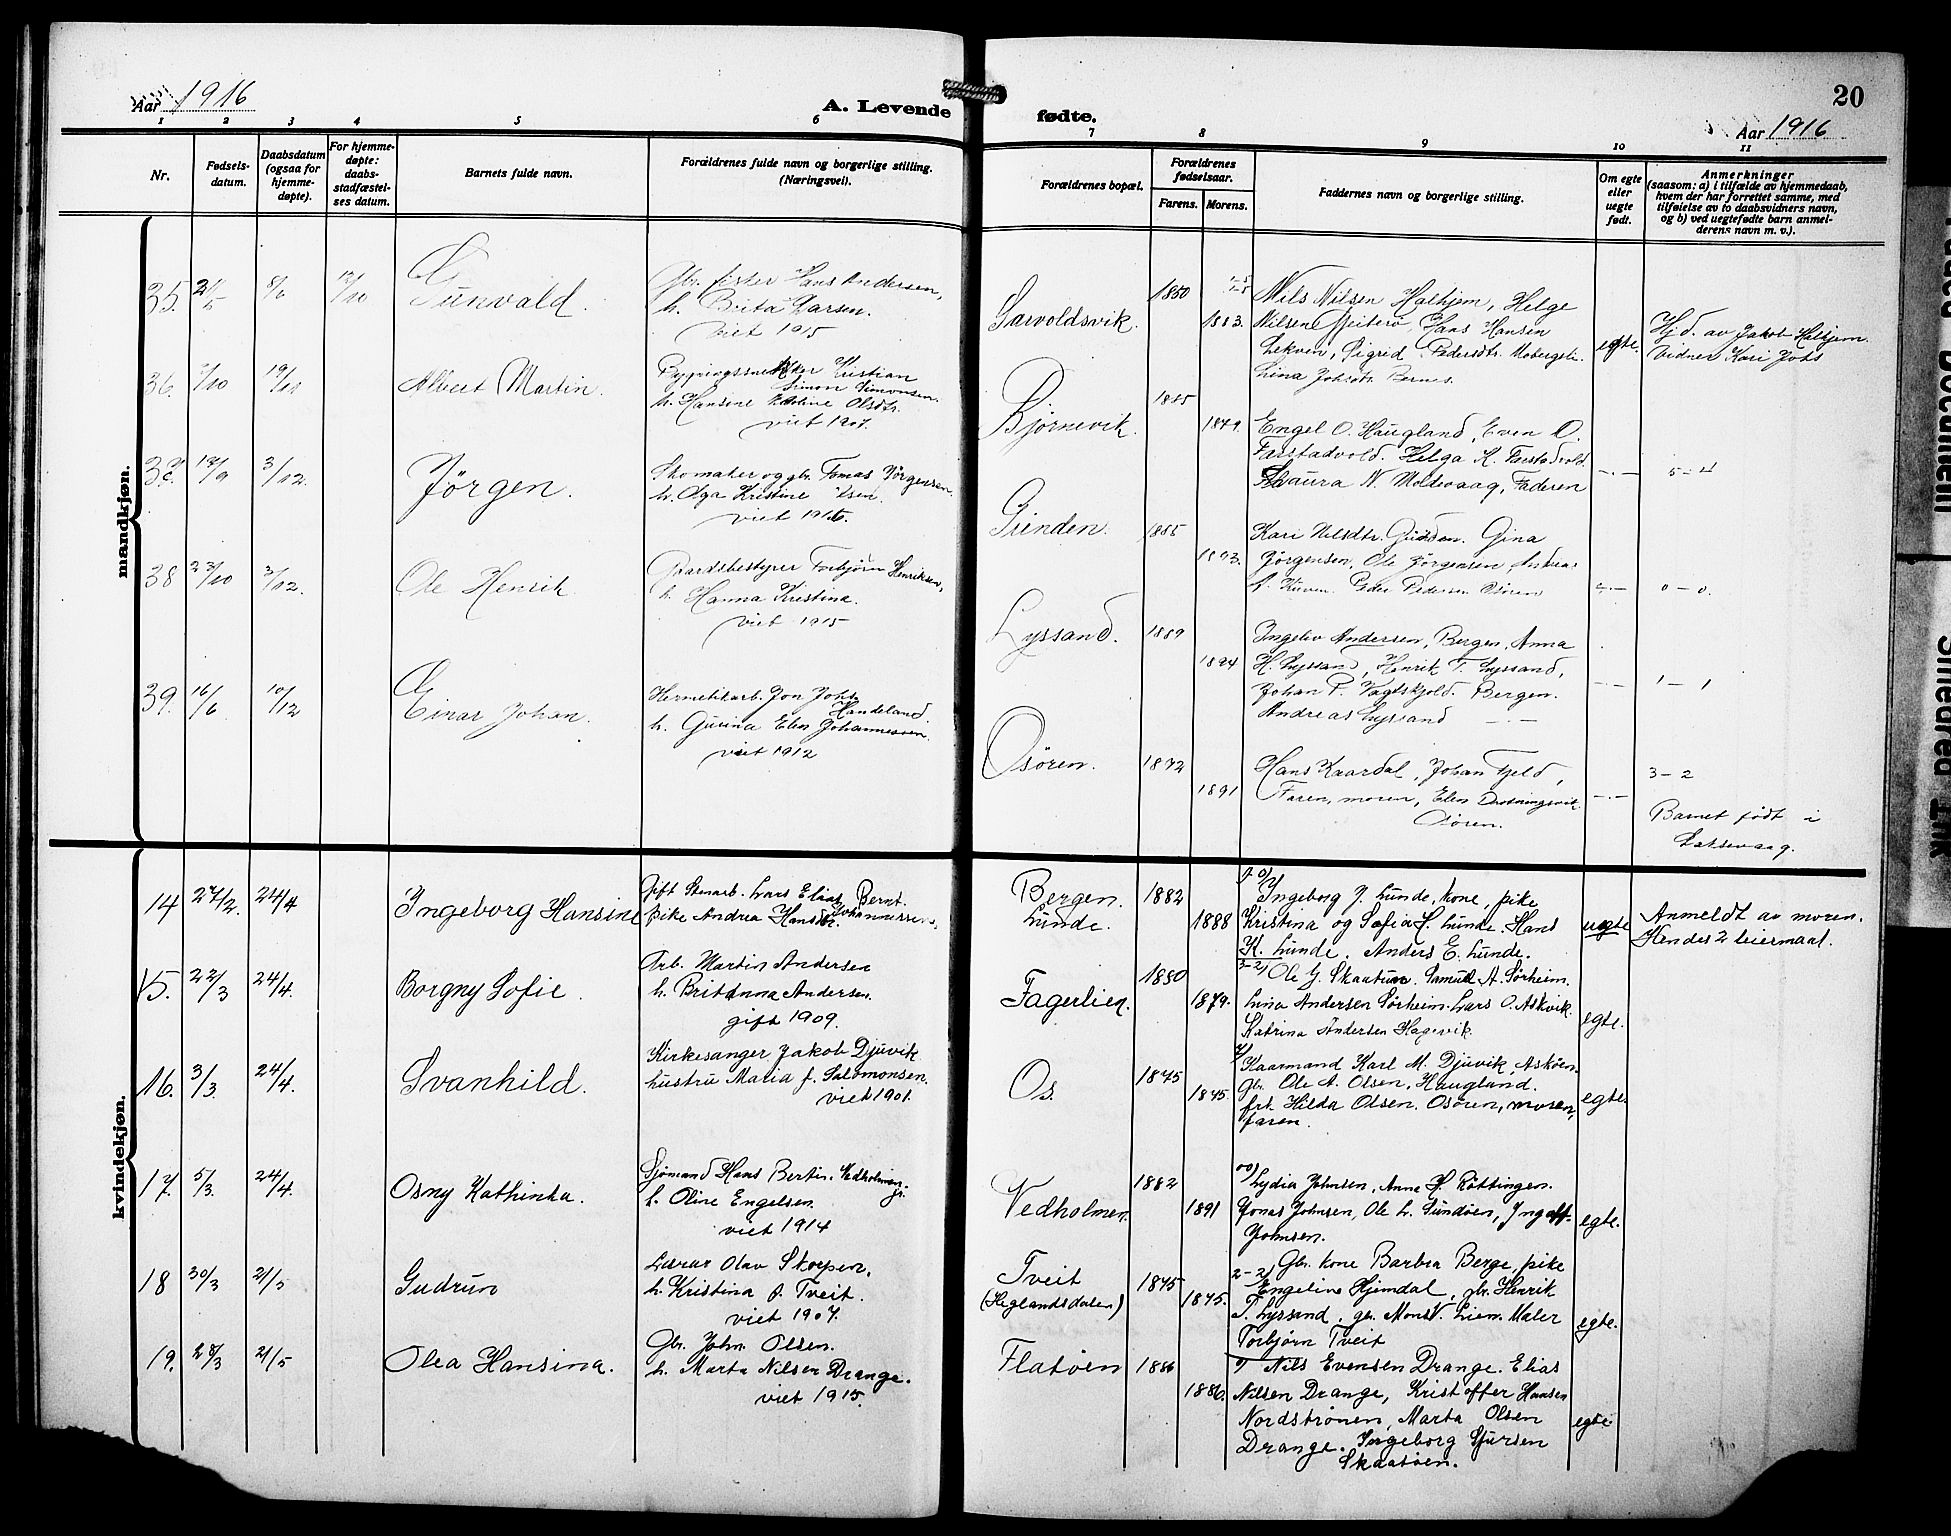 Aar 1916
A. Levende fødte.
20
Aar 1916
1 2 3 4 5 6 7 8 9 10 11
Nr.
Fødsels-
datum.
Daabsdatum
(ogsaa for
hjemme-
døpte).
For hjemme-
døpte:
daabs-
stadfæstel-
ses datum.
Barnets fulde navn.
Forældrenes fulde navn og borgerlige stilling.
(Næringsvei).
Forældrenes bopæl.
Forældrenes
fødselsaar.
Farens. Morens.
Faddernes navn og borgerlige stilling.
Om egte
eller
uegte
født.
Anmerkninger
(saasom: a) i tilfælde av hjemmedaab,
hvem der har forrettet samme, med
tilføielse av to daabsvidners navn,
og b) ved uegtefødte barn anmel-
derens navn m. v.).
mandkjøn.
35. 21/5 12/10
Gunvald.
Gbr. fisker Hans Andersen,
h. Brita Larsen.
viet 1915
1850
1883.
Nils Nilsen Halhjem, Helge
Nilsen Hans Hansen
Sigrid Pedersdtr. Mobergsli.
Lina Johsdtr.
egte.
Hjd. av Jakob Halhjem.
Vidner Kari Johs
36. 7/10
Albert Martin.
Kristian
Simon Simonsen.
h. Hansine Olsdtr.
viet 1907.
Bjørnevik.
1885
1879.
Engel O. Haugland, Even O.
Farstadvold. Helga K. Farstadvold.
Laura N. Moldevaag, Faderen
-"-
5-4
37. 13/9 3/12.
Jörgen.
Skomaker og gbr. Tomas Jörgensen
h. Olga Kristine
viet 1916.
Grinden.
1885
1893.
Kari Nilsdtr. Gina
Jörgensen, Ole Jörgensen, Andrea
Peder Pedersen Osören
-"-
0-0.
38 23/10 3/12.
Ole Henrik
Gaardsbestyrer Torbjörn Henriksen,
h. Hanna Kristina.
viet 1915
Lyssand.
1889
1894
Andersen, Bergen, Anna
H. Lyssand, Henrik T. Lyssand,
Johan P. Vagtskjold. Bergen.
Andreas Lyssand -"-
-"-
1-1
39. 16/6 10/12
Einar Johan.
Hermetikarb. Jon Johs
Handeland.
h. Gurina Elen Johannessen.
viet 1912
Osören.
1872
1891
Hans Kaardal, Johan Fjeld,
Faren, moren, Elen
Osören.
-"-
3-2
Barnet født i
Laksevaag.
kvindekjøn.
14 27/2. 24/4
Ingeborg Hansine
Gift Stenarb. Lars Elias Bernt.
pike Andrea Hansdtr. Johannessen.
Bergen.
Lunde.
1882
1888
Ingeborg J. Lunde, kone, pike
Kristina og Sofia H. Lunde. Hans
K. Lunde. Anders E. Lunde.
uegte
Anmeldt av moren.
Hendes 2 leiermaal.
15. 22/3 24/4.
Borgny Sofie.
Arb. Martin Andersen
h. Brit Anna Andersen.
gift 1909.
Fagerlien.
1880
1879.
3-2) Ole G. Skaatun. Samuel A. Sørheim.
Lina Andersen Sørheim. Lars O. Askvik.
Katrina Andersen Hagevik.
egte.
16. 3/3. 24/4.
Svanhild.
Kirkesanger Jakob Djuvik
hustru Maria f. Salomonsen.
viet 1901.
Os.
1875
1875.
Kaarmand Karl M. Djuvik, Askøen.
Gbr. Ole A. Olsen, Haugland.
frk. Hilda Olsen. Osøren, moren,
faren.
egte.
17. 5/3. 24/4.
Osny Kathinka.
Sjømand Hans Bertin. Vedholmen
h. Oline Engelsen.
viet 1914
Vedholmen.
1882
1891
Lydia Johnsen, Anna H. Röttingen.
Jonas Johnsen, Ole L. Sundöen, Ingolf
Johnsen.
egte.
18 30/3 21/5
Gudrun
Lærer Olav Skorpen.
h. Kristina f. Tveit.
viet 1907.
Tveit
(Heglandsdalen)
1875
1875.
2-2) Gbr. kone Barbra Berge, pike
Engeline Hjemdal, gbr. Henrik
T. Lyssand, gbr. Mons V. Liem. Maler
Torbjørn Tveit
egte.
19. 28/3 21/5
Olea Hansina.
Gbr. John Olsen.
h. Marta Nilsen Drange.
viet 1915.
Flatøen
1886
1886.
Nils Evensen Drange. Elias
Nilsen Drange, Kristoffer Hansen
Nordstrønen, Marta Olsen
Drange. Ingeborg Sjursen
Skaatøen.
egte